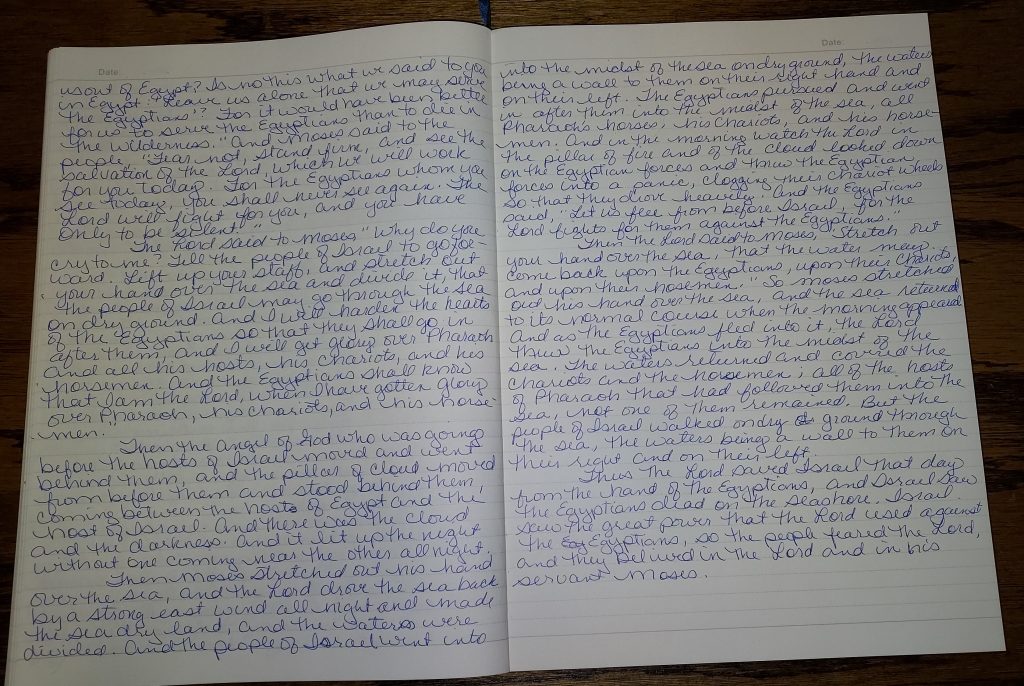 Date
us out of Egypt? Is no this what we said to you
in Egypt 'Leave us alone that we may serve
the Egyptians'? For it would have been better
for us to serve the Egyptians than to die in
the wilderness." And Moses said to the
people, "Fear not, stand firm, and see the
salvation of the Lord, which we will work
for you today. For the Egyptians whom you
see today, you shall never see again. The
Lord will fight for you, and you have
only to be silent."
The Lord said to Moses, "Why do you
cry to me? Tell the people of Israel to go for-
ward. Lift up your staff, and stretch out
your hand over the sea and divide it, that
the people of Israel may go through the sea
on dry ground. And I will harden the hearts
of the Egyptians so that they shall go in
after them, and I will get glory over Pharaoh
and all his hosts, his chariots, and his
horsemen. And the Egyptians shall know
that I am the Lord, when I have gotten glory
over Pharaoh, his chariots, and his horse-
men."
Then the angel of God who was going
before the hosts of Israel moved and went
behind them, and the pillar of cloud moved
from before them and stood behind them,
coming between the hosts of Egypt and the
host of Israel. And there was the cloud
and the darkness. And it lit up the night
without one coming near the other all night.
Then Moses stretched out his hand
over the sea, and the Lord drove the sea back
by a strong east wind all night and made
the sea dry land, and the waters were
divided. And the people of Israel went into
Date
into the midst of the sea on dry ground, the waters
being a wall to them on their right hand and
on their left. The Egyptians pursued and went
in after them into the midst of the sea, all
Pharaohs horses, his chariots, and his horse-
men. And in the morning watch the Lord in
the pillar of fire and of the cloud looked down
on the Egyptian forces and threw the Egyptian
forces into a panic, clogging their chariot wheels
so that they drove heavily. And the Egyptians
said, "Let us flee from before Israel, for the
Lord fights for them against the Egyptians."
Then the Lord said to Moses, "Stretch out
your hand over the sea, that the water may
come back upon the Egyptians, upon their chariots,
and upon their hosemen." So Moses stretched
out his hand over the sea, and the sea returned
to its normal course when the morning appeared
And as the Egyptians fled into it, the Lord
threw the Egyptians into the midst of the
sea. The waters returned and covered the
chariots and the horsemen; all of the hosts
of Pharaoh that had followed them into the
sea, not one of them remained. But the
people of Israel walked on dry ground through
the sea, the waters being a wall to them on
their right and on their left.
Thus the Lord saved Israel that day
from the hand of the Egyptians, and Israel saw
the Egyptians dead on the seashore. Israel
saw the great power that the Lord used against
the Egyptians, so the people feared the Lord,
and they believed in the Lord and in his
servant Moses.